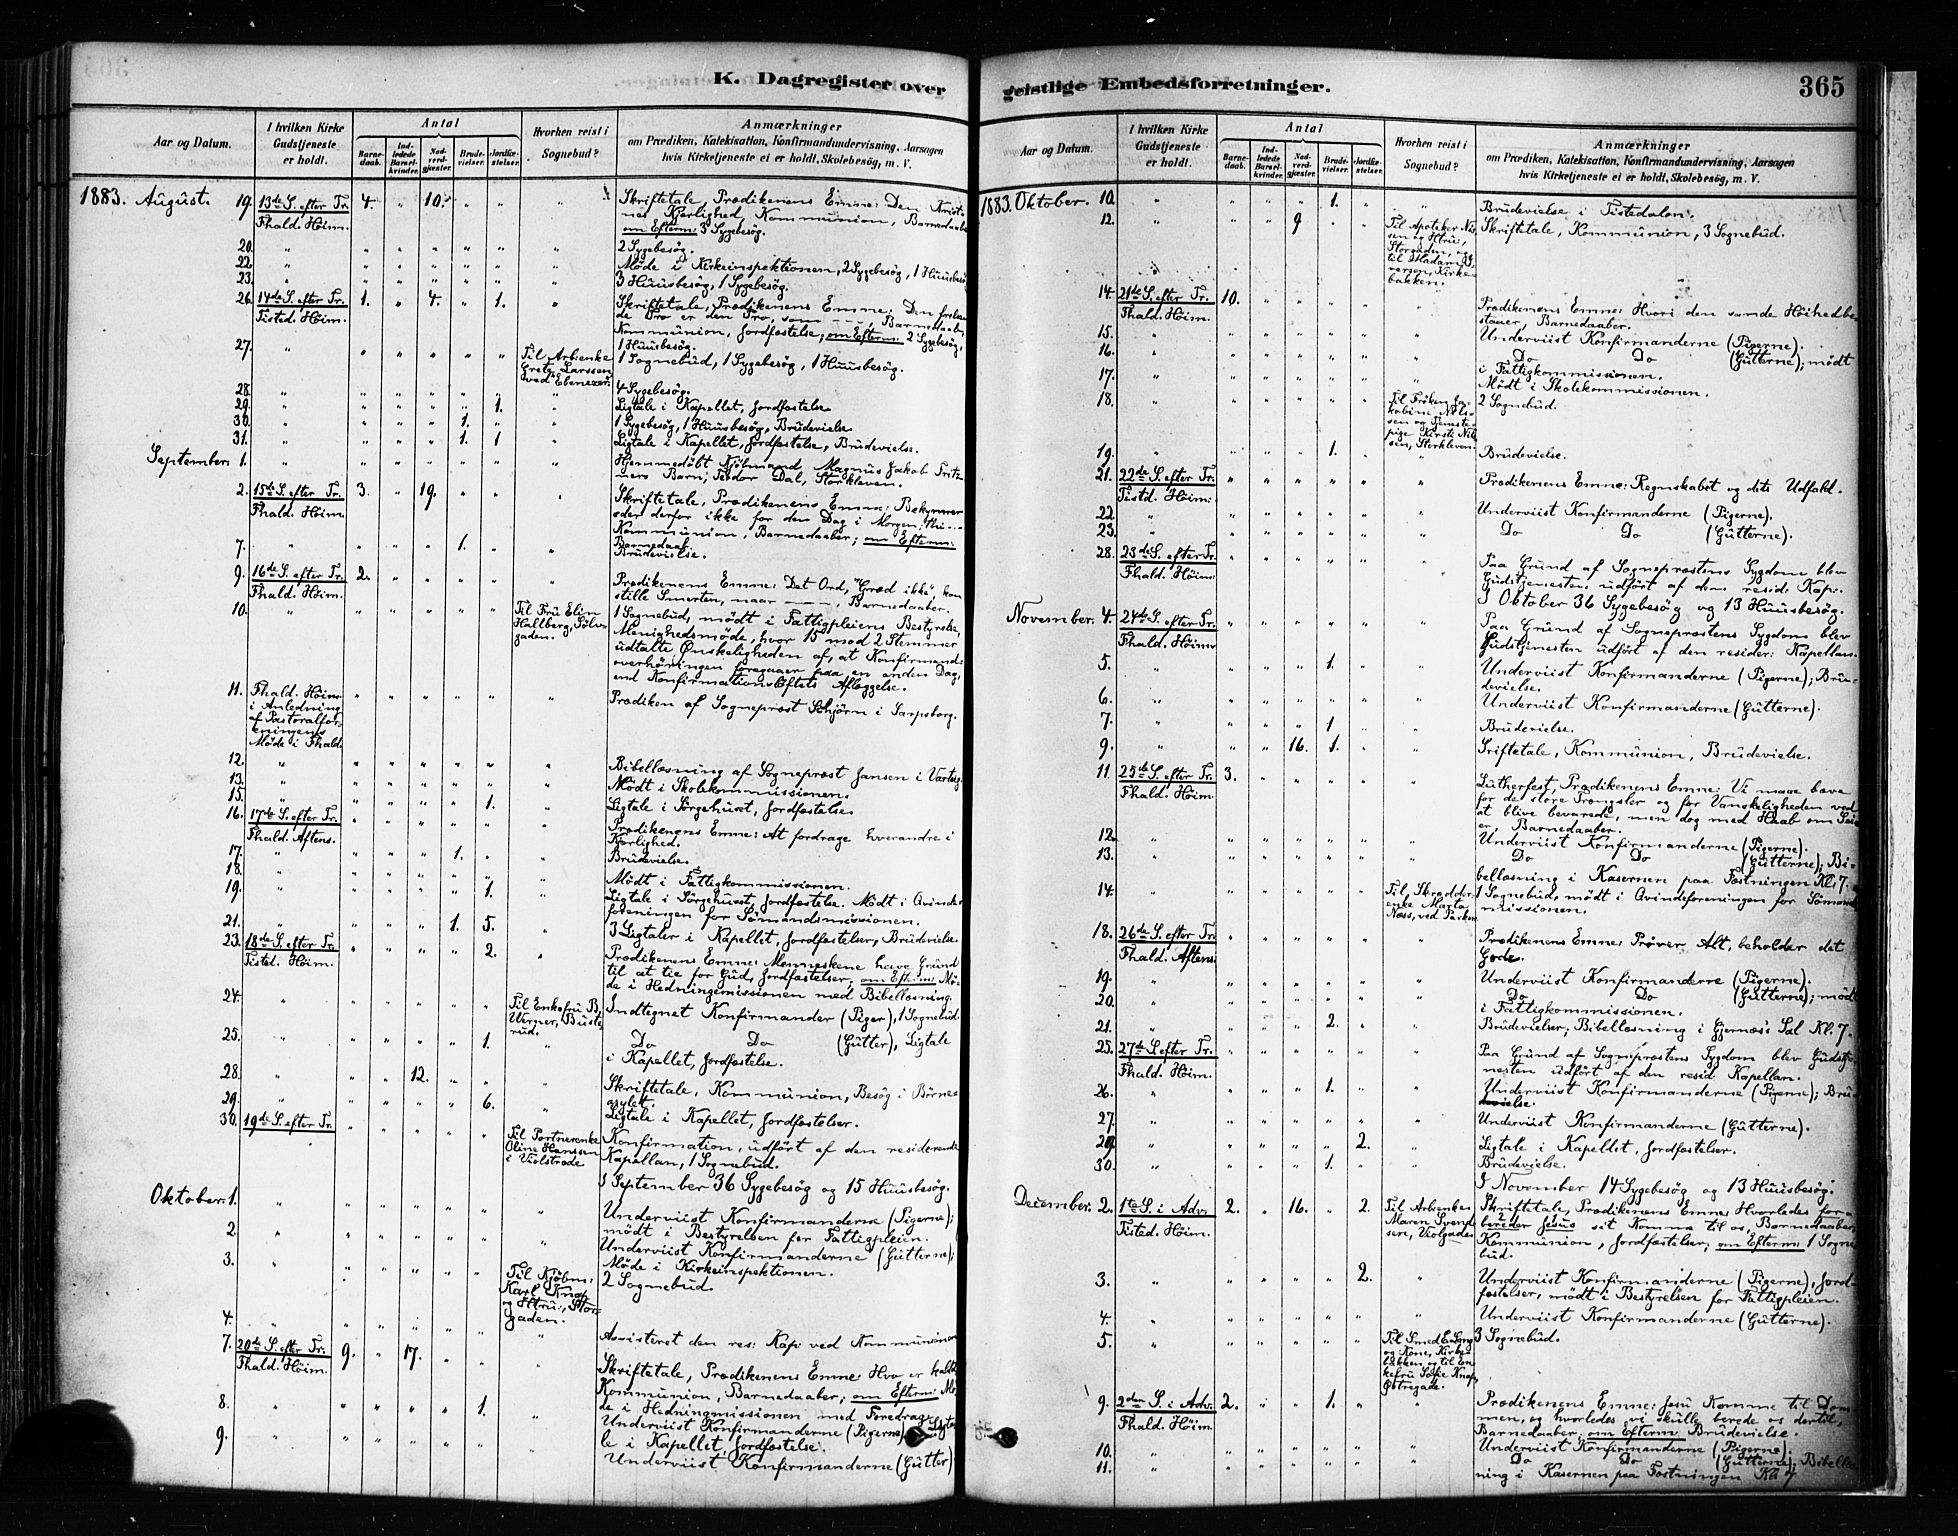 K. Dagregister over
Aar og Datum.
I hvilken Kirke Gudstjeneste er holdt.
Antal
Barnedaab.
Indledede Barselkvinder.
Nadverdgjester.
Brudevielser.
Jordfæstelser.
Hvorhen reist i Sognebud?
Anmærkninger
om Prædiken, Katekisation, Konfirmandundervisning, Aarsagen
hvis Kirketjeneste ei er holdt, Skolebesøg, m. V.
1883. August. 19. 13de S. efter Tr. 4. " 10. " " " Skriftetale, Prædikenens Emne: Den
Fhald. Höim. Kjærlighed, Kommunion, Barnedaab
om Efterm: 3 Sygebesøg.
20. " " " " " " " 2 Sygebesøg.
22 " " " " " " " Møde i Kirkeinspektionen, 2 Sygebesøg, 1 Huusbesøg
23. " " " " " " " 3 Huusbesøg, 1 Sygebesøg.
26. 14de S. efter Tr. 1. " 4. " 1. " Skriftetale, Prædikenens Emne: Den
Tisted. Höim. de Tro er den Tro, som ---, Barnedaab
Kommunion, Jordfæstelse; om Efterm: 2 Sygebesøg,
1 Huusbesøg.
27. " " " " " " Til Arbienke 1 Sognebud, 1 Sygebesøg, 1 Huusbesøg.
Grete Larssen
ved Ebenezer.
28. " " " " " " " 4 Sygebesøg.
29. " " " " " 1. " Ligtale i Kapellet, Jordfæstelse
30. " " " " 1. " " 1 Sygebesøg, 1 Huusbesøg, Brudevielse
31. " " " " 1. 1 " Ligtale i Kapellet, Jordfæstelse, Brudevielse.
September: 1. " " " " " " " Hjemmedøbt Kjøbmand Magnus Jakob Fritz
ners Barn, Teodor Dal, Storkleven.
2. 15de S. efter Tr. 3. " 19. " " " Skriftetale, Prædikenens Emne: Bekymrer
Fhald. Höim. eder derfor ikke for den Dag i Morgen; thi --
Kommunion, Barnedaaber; om Efterm:
Barnedaab.
7. " " " " 1. " Brudevielse.
9. 16de S. efter Tr. 2. " " " " " Prædikenens Emne: Det Ord, "Græd ikke", kan
Fhald. Höim. stille Smerten, naar ---, Barnedaaber.
10. " " " " " " Til Fru Elin 1 Sognebud, mødt i Fattigpleiens Bestyrelse,
Hallberg, Sølv- Menighedsmøde, hvor 15 mod 2 Stemmer
gaden. udtalte Ønskeligheden af, at Konfirmand-
overhøringen foregaaer paa en anden Dag,
end Konfirmationsløftets Aflæggelse.
11. Fhald. Höim. " " " " " " Prædiken af Sogneprest Schjörn i Sarpsborg.
i Anledning
af Pastoralfor-
eningens
Møde i Fhald.
12. " " " " " " " Bibellæsning af Sogneprest Jansen i Varteig.
13. " " " " " " " Mødt i Skolekommissionen.
15. " " " " " 1. " Ligtale i Sørgehuset, Jordfæstelse.
16. 17de S. efter Tr. " " " " " " Prædikenens Emne: At fordrage hverandre i
Fhald. Aftens. Kjærlighed.
17. " " " " 1. " " Brudevielse.
18. " " " " " " " Mødt i Fattigkommissionen.
19. " " " " " 1. " Ligtale i Sørgehuset, Jordfæstelse. Mødt i Qvinde-
foreningen for Sømandsmissionen.
21. " " " " 1. 5. " 3 Ligtaler i Kapellet, Jordfæstelser, Brudevielse.
23. 18de S. efter Tr. " " " " 2. " Prædikenens Emne: Menneskene have Grund
Tisted. Höim. til at tie for Gud, Jordfæstelser, om Efterm: Mø-
de i Hedningemissionen med Bibellæsning.
24. " " " " " " Til Enkefru B. Indtegnet Konfirmander (Piger), 1 Sognebud.
Werner, Buste-
rud.
25. " " " " " 1. " Do Do (Gutter), Ligtale
i Kapellet, Jordfæstelse.
28. " " " 12. " " " Skriftetale, Kommunion, Besøg i Børne-
asylet.
29. " " " " " 6. " Ligtale i Kapellet, Jordfæstelser.
30. 19de S. efter Tr. " " " " " Til Portnerenke Konfirmation, udført af den residerende
Oline Hanssen Kapellan, 1 Sognebud.
i Violstræde
I September 36 Sygebesøg og 15 Huusbesøg.
Oktober: 1. " " " " " " " Underviist Konfirmanderne (Pigerne);
mødt i Bestyrelsen for Fattigpleien.
2. " " " " " " " Underviist Konfirmanderne (Gutterne);
Møde i Kirkeinspektionen.
3. " " " " " " Til Kjøbm: 2 Sognebud.
Karl Knap
og Htru, Stor-
gaden.
4. " " " " " " " Assisteret den res: Kap: ved Kommunionen
7. 20de S. efter Tr. 9. " 17. " " " Skriftetale, Prædikenens Emne: Hvo er
Fhald. Höim. Kommunion, Barnedaaber; om Efterm: Mø-
de i Hedningmissionen med Foredrag.
8. " " " " " 1. " Underviist Konfirmanderne (Pigerne), Ligta-
le i Kapellet, Jordfæstelse.
9. " " " " " " " Underviist Konfirmanderne (Gutter)
geistlige Embedsforretninger.
365
Aar og Datum.
I hvilken Kirke Gudstjeneste er holdt.
Antal
Barnedaab.
Indledede Barselkvinder.
Nadverdgjester.
Brudevielser.
Jordfæstelser.
Hvorhen reist i Sognebud?
Anmærkninger
om Prædiken, Katekisation, Konfirmandundervisning, Aarsagen
hvis Kirketjeneste ei er holdt, Skolebesøg, m. V.
1883. Oktober. 10. " " " " 1. " " Brudevielse i Tistedalen.
12. " " " 9 " " Til Apoteker Nis- Skriftetale, Kommunion, 3 Sognebud.
sen og Htru,
Storgaden, og
til Madam
Kirke-
bakken.
14. 21de S. efter Tr. 10. " " " " " Prædikenens Emne: Hvori den sande Höihed be-
Fhald. Höim. staaer, Barnedaaber.
15. " " " " " " " Underviist Konfirmanderne (Pigerne).
16. " " " " " " " Do Do (Gutterne); mødt
i Fattigkommissionen.
17. " " " " " " " Mødt i Skolekommissionen.
18. " " " " " " Til Frøken Ja- 2 Sognebud.
kobine Nils-
sen og Tjeneste-
pige Kirsti Nil-
sen, Storkleven.
19. " " " " 1. " " Brudevielse.
21. 22de S. efter Tr. " " " " " " Prædikenens Emne: Regnskabet og dets Udfald.
Tistd. Höim:
22 " " " " " " " Underviist Konfirmanderne (Pigerne).
23. " " " " " " " Do Do (Gutterne).
28. 23de S. efter Tr. " " " " " " Paa Grund af Sogneprestens Sygdom blev
Fhald. Höim: Gudstjenesten udført af den resid: Kap:
I Oktober 36 Sygebesøg og 13 Huusbesøg.
November: 4. 24de S. efter Tr. " " " " " " Paa Grund af Sogneprestens Sygdom blev
Fhald. Höim: Gudstjenesten udført af den resider: Kapellan.
5. " " " " 1. " " Underviist Konfirmanderne (Pigerne); Bru-
devielse.
6. " " " " " " " Underviist Konfirmanderne (Gutterne).
7. " " " " 1 " " Brudevielse.
9. " " " 16. 1. " " Sriftetale, Kommunion, Brudevielse.
11. 25de S. efter Tr. 3. " " " " " Lutherfest, Prædikenens Emne: Vi maae bæve
Fhald. Höim. for de store Trængsler og for Vanskeligheden ved
at blive bevarede, men dog med Haab om
er, Barnedaaber.
12. " " " " " " " Underviist Konfirmanderne (Pigerne).
13. " " " " " " " Do Do (Gutterne); Bi-
bellæsning i Kasernen paa Fæstningen Kl. 7.
14. " " " " " " Til Skrædder- 1 Sognebud, mødt i Qvindeforeningen for Sømands-
enke Marta missionen.
Næss, ved Parken
18. 26de S. efter Tr. " " " " " " Prædikenens Emne: Prøver Alt, beholder det
Fhald. Aftens. Gode.
19. " " " " " " " Underviist Konfirmanderne (Pigerne).
20. " " " " " " " Do Do (Gutterne); mødt
i Fattigkommissionen.
21. " " " " 2. " " Brudevielser, Bibellæsning i Gjernæs's Sal Kl. 7.
25. 27de S. efter Tr. " " " " " " Paa Grund af Sogneprestens Sygdom blev Gudstje-
Fhald. Höim. nesten udført af den resid. Kapellan.
26. " " " " 1. " " Underviist Konfirmanderne (Pigerne); Bru-
devielse.
27. " " " " " " " Underviist Konfirmanderne (Gutterne).
29. " " " " " 2. " Ligtale i Kapellet, Jordfæstelser.
30. " " " " 1. " " Brudevielse.
I November 14 Sygebesøg og 13 Huusbesøg.
December. 2. 1ste S. i Adv: 2. " 16. " 2. Til Arbienke Skriftetale, Prædikenens Emne: Hvorledes for-
Tisted. Höim. Maren Svend- bereder Jesus sit Komme til os, Barnedaaber,
sen, Violgaden Kommunion, Jordfæstelser; om Efterm: 1 Sogne-
bud.
3. " " " " " 2. " Underviist Konfirmanderne (Pigerne), Jord-
fæstelser, mødt i Bestyrelsen for Fattigpleien.
4. " " " " " " " Underviist Konfirmanderne (Gutterne).
5 " " " " " " Til Smed 3 Sognebud.
og Kone, Kirke-
bakken, og til En-
kefru Sofie Knap,
Østregade.
9. 2den S. i Adv: 2. " " 1. " " Prædikenens Emne: Jesu Komme til Dom-
Fhald. Höim. men, og hvorledes vi skulle berede os dertil,
Barnedaaber, om Efterm: Brudevielse.
10. " " " " " " " Underviist Konfirmanderne (Pigerne).
11. " " " " " " " Do Do (Gutterne); Bibellæs-
ning i Kasernen paa Fæstningen Kl. 7